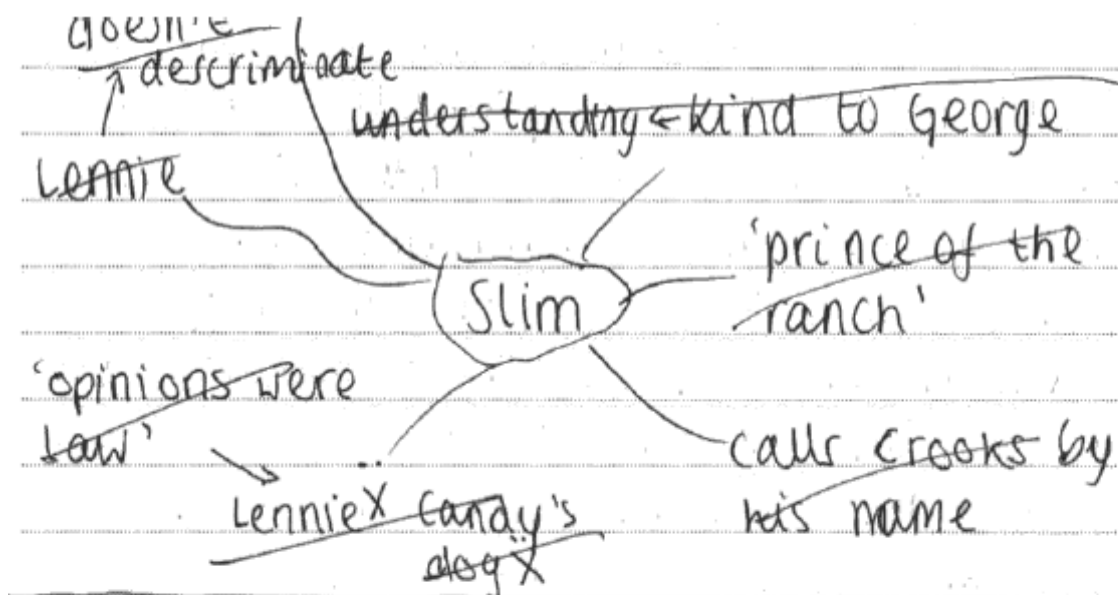 doesn't
descriminate
understanding ← kind to George
Lennie
'prince of the
ranch'
Slim
'opinions were
law'
calls Crooks by
his name
Lennie X Candy's
dog X